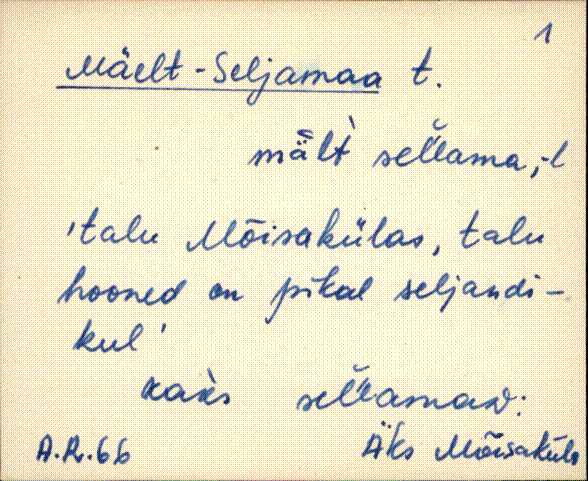 1
Mäelt-Seljamaa t.
seĽĽama, -l
'talu Mõisakülas, talu
hooned on pikal seljandi-
kul'
kaks seĽĽamad:
A.R.66 Äks Mõisaküla